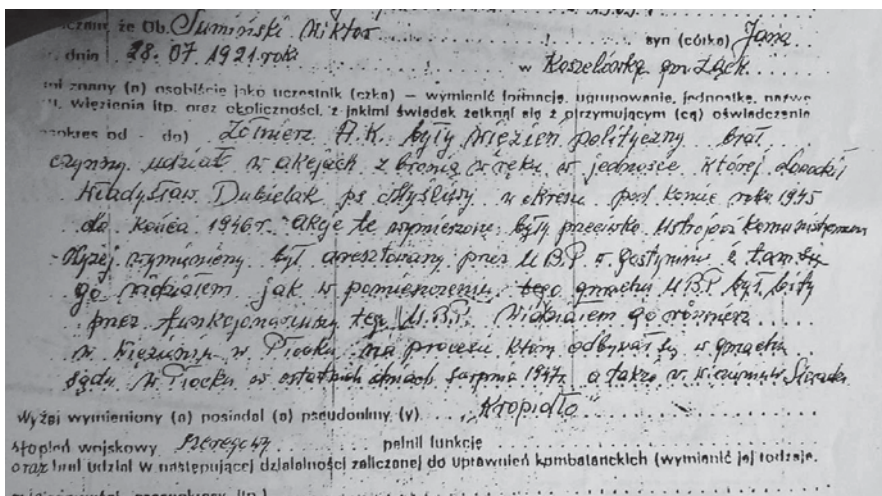 że Ob. Sumiński Wiktor syn (córka) Jana
dnia 28.07 1921 roku w Koszelówka gm. Łąck
znany (a) osobiście jako uczestnik (czka) — wymienić formację, ugrupowanie, jednostkę, nazwę
więzienia itp. oraz okoliczności, z jakimi świadek zetknął się z otrzymującym (cą) oświadczenie
okres od - do) Żołnierz A.K. były więzień polityczny brał
czynny udział w akcjach z bronią w ręku w jednostce której dowodził
Władysław Dubielak ps Myśliwy w okresie pod koniec roku 1945
do końca 1946 r. akcje te wymierzone były przeciwko Ustrojowi Komunistycznemu
Wyżej wymieniony był aresztowany przez U.B.P w Gostyninie i tam
go widziałem jak w pomieszczeniu tego gmachu U.B.P. był bity
przez funkcjonariuszy tego U.B.P. Widziałem go również
w więzieniu w Płocku na procesie który odbywał się w gmachu
sądu w Płocku w ostatnich dniach sierpnia 1947r. a także w
Wyżej wymieniony (a) posiadał (a) pseudonimy (y) "Kropidło"
stopień wojskowy szeregowy pełnił funkcję
oraz brał udział w następującej działalności zaliczonej do uprawnień kombatanckich (wymienić jej rodzaje,